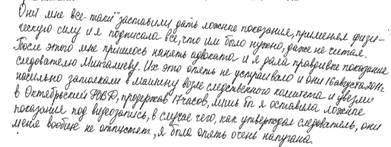 Они мне все-таки заставили дать ложные показания, применяя физи-
ческую силу и я подписала все, что им было нужно, даже не читая.
После этого мне пришлось нанять адвоката и я дала правдивые показания
следователю Митлалиеву. Их это опять не устраивало и они 16 августа 2011г.
насильно затолкали в машину возле следственного комитета и увезли
в Октябрьский РОВД, продержав 17 часов, лишь бы я оставила ложные
показания под видеозапись, в случае чего, как утверждал следователь, они
меня вообще не отпустят, я была опять очень напугана.